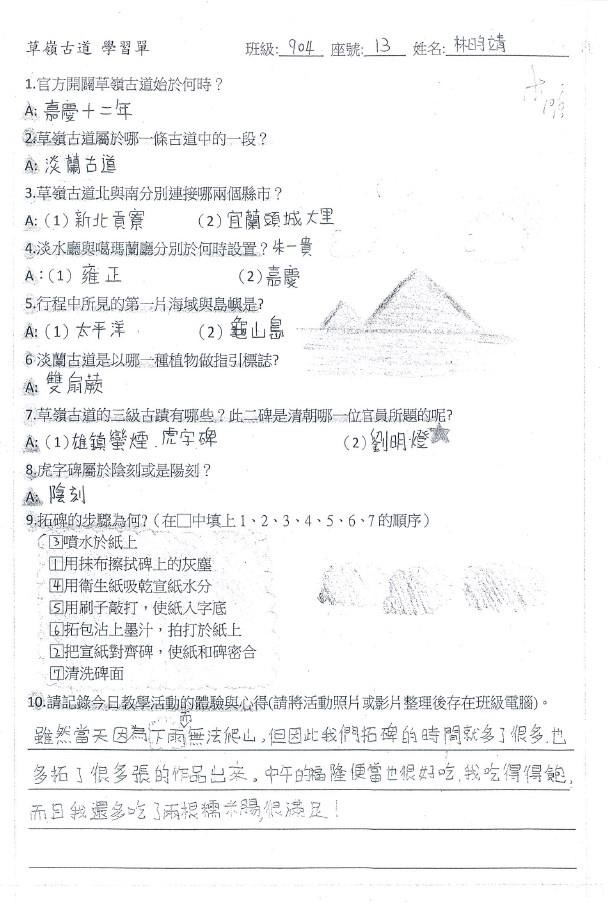 草嶺古道 學習單 班級: 904 座號: 13 姓名: 林昀靖
1.官方開闢草嶺古道始於何時？
A: 嘉慶十二年
2.草嶺古道屬於哪一條古道中的一段？
A: 淡蘭古道
3.草嶺古道北與南分別連接哪兩個縣市？
A: (1) 新北貢寮 (2) 宜蘭頭城大里
4.淡水廳與噶瑪蘭廳分別於何時設置？朱一貴
A：(1) 雍正 (2) 嘉慶
5.行程中所見的第一片海域與島嶼是?
A: (1) 太平洋 (2) 龜山島
6 淡蘭古道是以哪一種植物做指引標誌?
A: 雙扇蕨
7.草嶺古道的三級古蹟有哪些？此二碑是清朝哪一位官員所題的呢?
A: (1)雄鎮蠻煙．虎字碑 (2)劉明燈
8.虎字碑屬於陰刻或是陽刻？
A: 陰刻
9.拓碑的步驟為何?（在□中填上 1、2、3、4、5、6、7 的順序）
3噴水於紙上
1用抹布擦拭碑上的灰塵
4用衛生紙吸乾宣紙水分
5用刷子敲打，使紙入字底
6拓包沾上墨汁，拍打於紙上
2把宣紙對齊碑，使紙和碑密合
7清洗碑面
10.請記錄今日教學活動的體驗與心得(請將活動照片或影片整理後存在班級電腦)。
雖然當天因為下雨無法爬山，但因此我們拓碑的時間就多了很多，也
多拓了很多張的作品出來。中午的福隆便當也很好吃，我吃得得飽，
而且我還多吃了兩根糯米腸，很滿足！